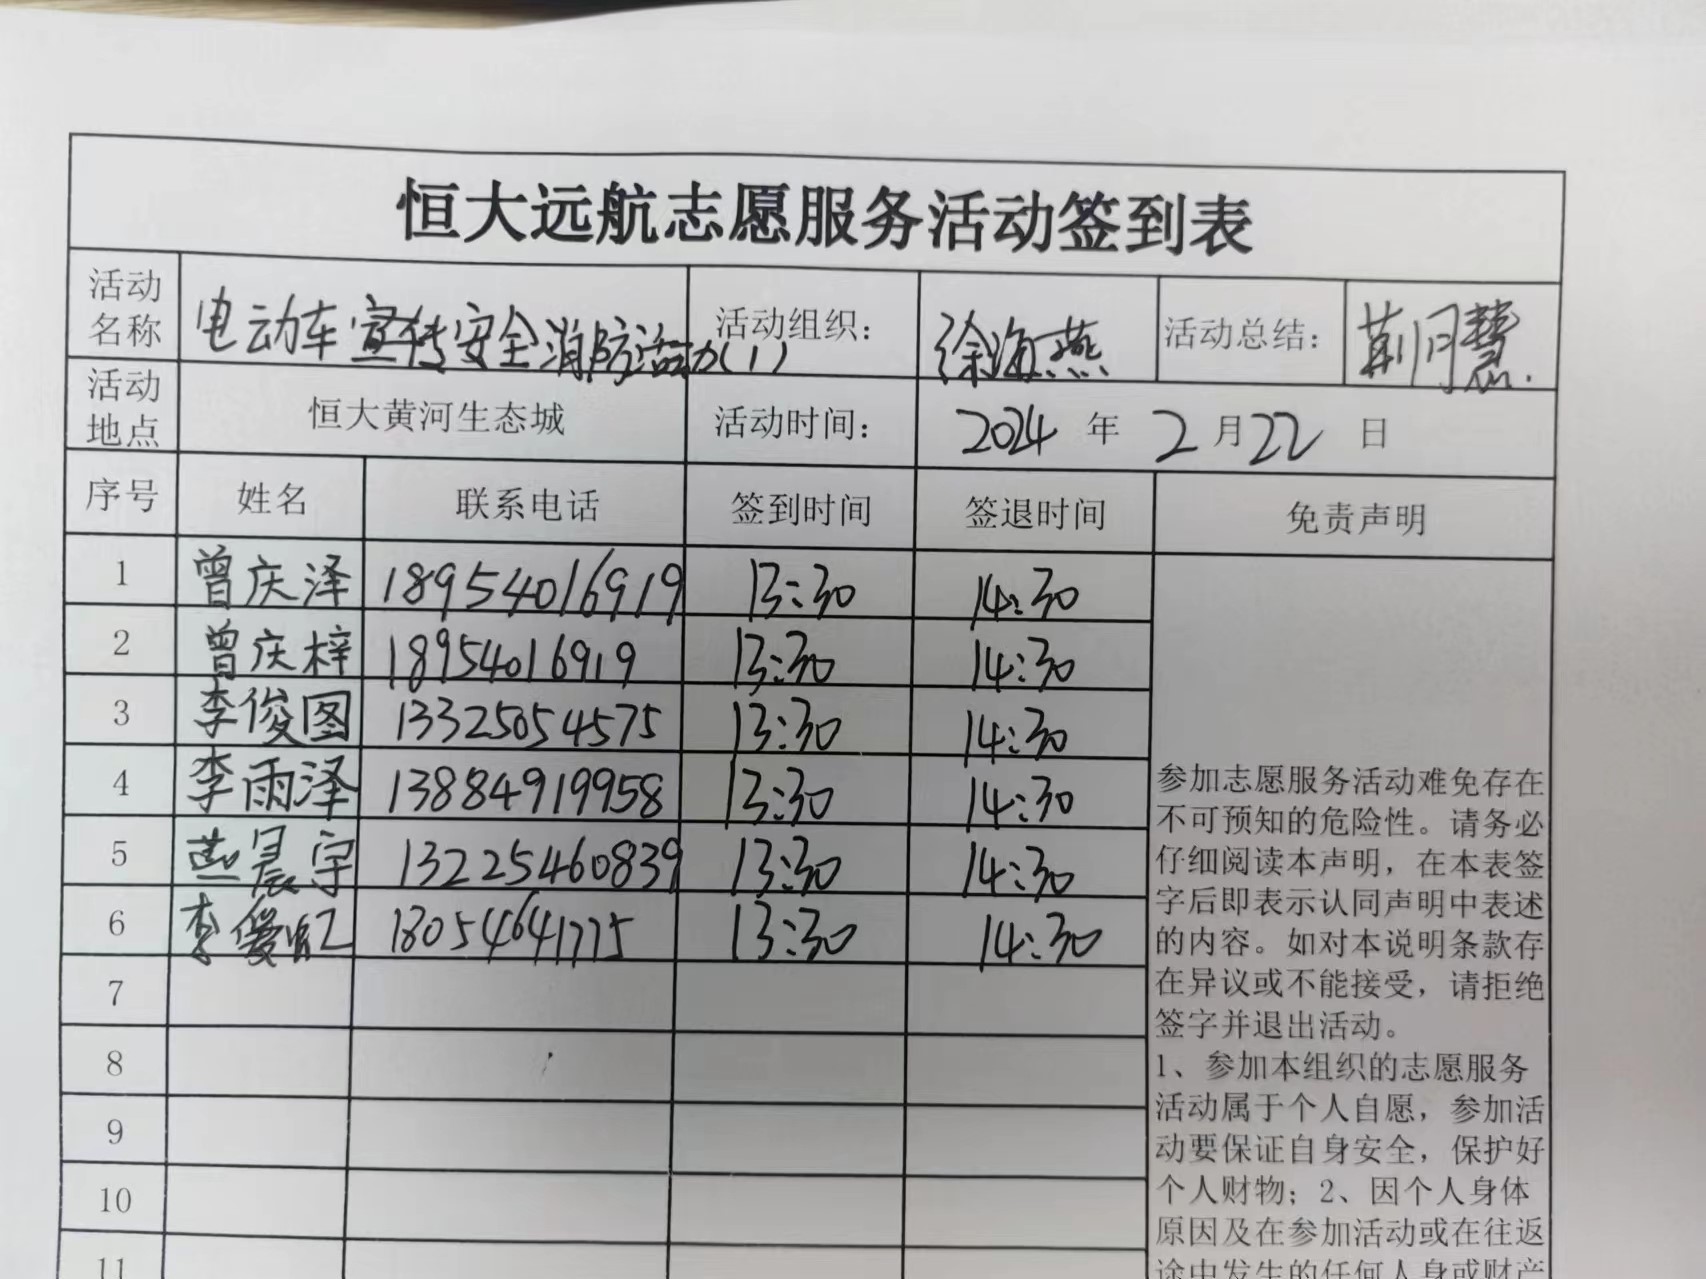 恒大远航志愿服务活动签到表
活动名称 电动车宣传安全消防活动(1) 活动组织： 徐海燕 活动总结： 荆月慧
活动地点 恒大黄河生态城 活动时间： 2024 年 2 月 22 日
序号 姓名 联系电话 签到时间 签退时间 免责声明
1 曾庆泽 18954016919 13:30 14:30
2 曾庆梓 18954016919 13:30 14:30
3 李俊图 13325054575 13:30 14:30
4 李雨泽 13884919958 13:30 14:30
5 燕晨宇 13225460839 13:30 14:30
6 李 18054641775 13:30 14:30
7
8
9
10
11
参加志愿服务活动难免存在
不可预知的危险性。请务必
仔细阅读本声明，在本表签
字后即表示认同声明中表述
的内容。如对本说明条款存
在异议或不能接受，请拒绝
签字并退出活动。
1、参加本组织的志愿服务
活动属于个人自愿，参加活
动要保证自身安全，保护好
个人财物；2、因个人身体
原因及在参加活动或在往返
途中发生的任何人身或财产